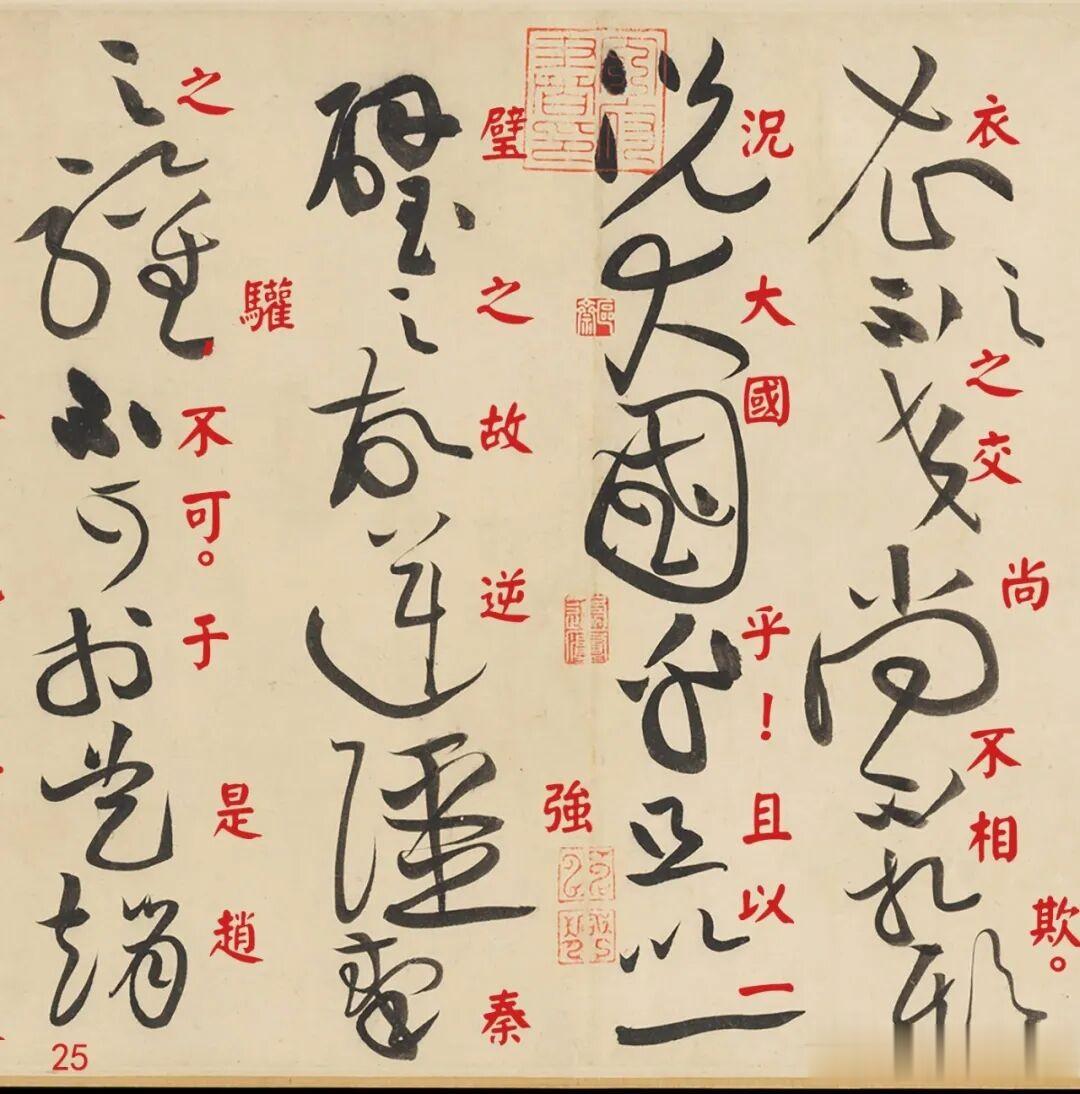 衣之交尚不相欺。
況大國乎！且以一
璧之故逆強秦
之驩，不可。于是趙
25